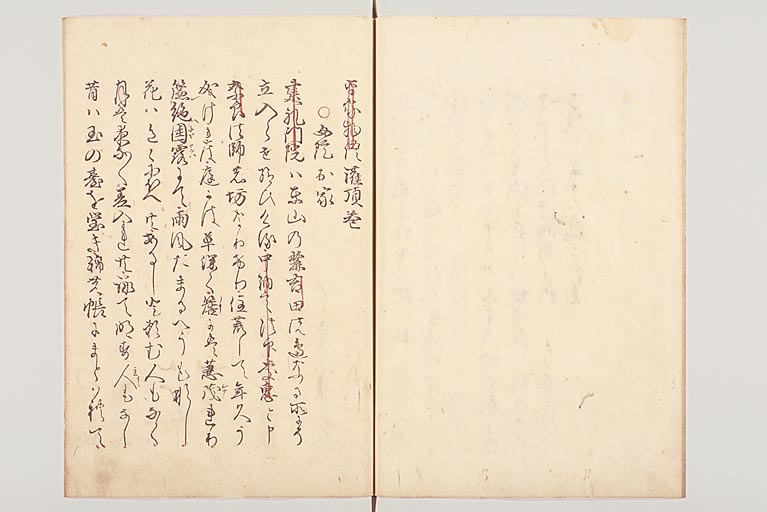 平家物語灌頂巻
○女院出家
建礼門院ハ東山の麓吉田の辺なる所にそ
立入らせ給ひける中納言法印慶恵と申
奈良法師の坊なりけり住荒して年久う
成けれは庭には草深く簷には蔥茂れり
簾絶閨露にて雨風たまるへうも無し
花ハ色々にほへ共あるしと頼む人もなく
月は夜な〳〵差入れ共詠て明す人もなし
昔ハ玉の台を瑩き錦の帳にまとはれて